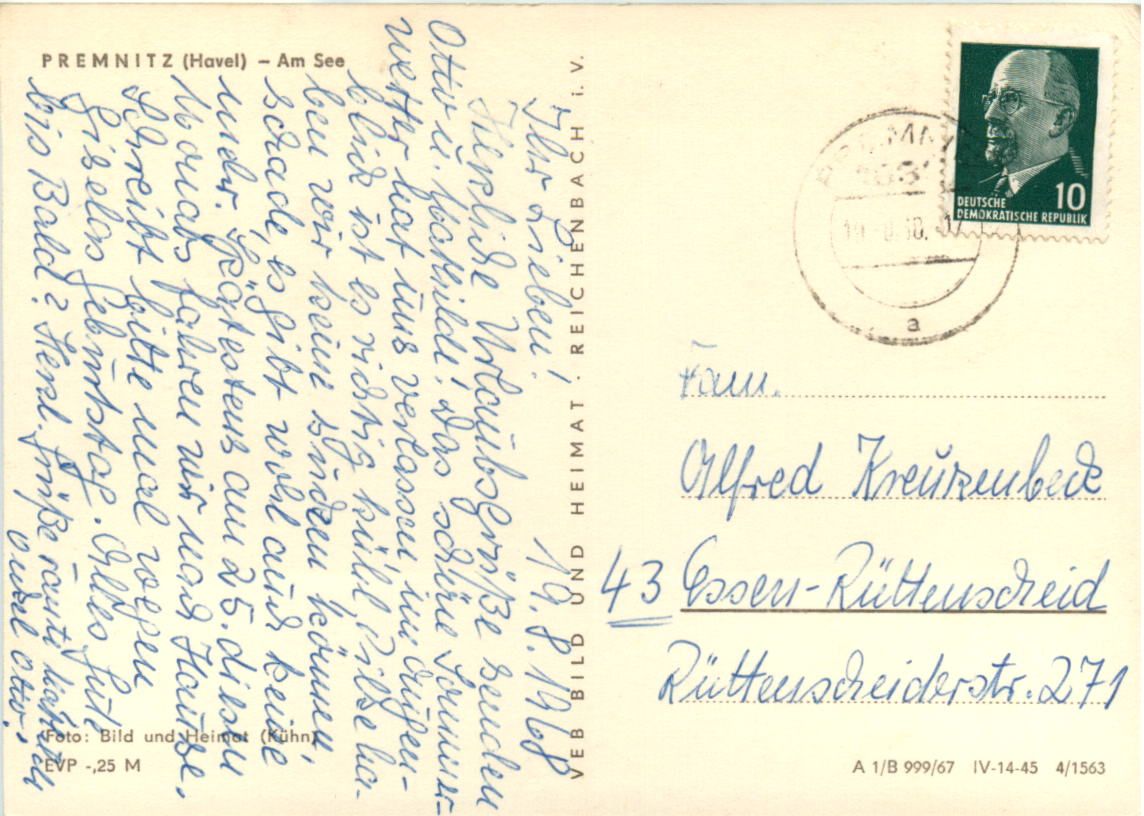 PREMNITZ (Havel) – Am See
19.8.1968
Ihr Lieben!
Herzliche Urlaubsgrüße senden
Otto u. Mathilde! Das schöne Sommer-
wetter hat uns verlassen, im Augen-
blick ist es richtig kühl, Pilze ha-
ben wir keine finden können,
schade, es gibt wohl auch keine
mehr. Spätestens am 25. diesen
Monats fahren wir nach Hause.
Schreibt bitte mal wegen
Giselas Geburtstag. Alles Gute
bis Bald? Herzl. Grüße Tante
Onkel Otto.
Foto: Bild und Heimat (Kühn)
EVP -,25 M
VEB BILD UND HEIMAT · REICHENBACH i. V.
10
DEUTSCHE
DEMOKRATISCHE REPUBLIK
a
Fam.
Alfred Kreuzenbeck
43 Essen-Rüttenscheid
Rüttenscheiderstr. 271
A 1/B 999/67 IV-14-45 4/1563